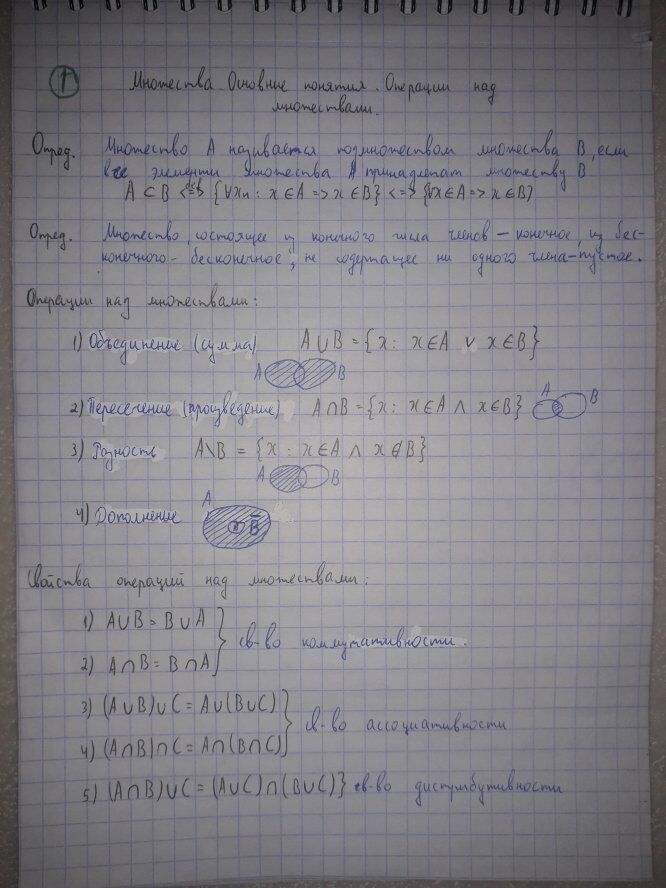 1
Множества. Основные понятия. Операции над
множествами.
Опред. Множество A называется подмножеством множества B, если
все элементы множества A принадлежат множеству B
A ⊂ B <=> {∀x: x ∈ A => x ∈ B} <=> {∀x ∈ A => x ∈ B}
Опред. Множество, состоящее из конечного числа членов – конечное, из бес-
конечного - бесконечное, не содержащее ни одного члена – пустое.
Операции над множествами:
1) Объединение (сумма) A ∪ B = {x: x ∈ A ∨ x ∈ B}
A B
2) Пересечение (произведение) A ∩ B = {x: x ∈ A ∧ x ∈ B} A B
3) Разность A \ B = {x: x ∈ A ∧ x ∉ B}
A B
4) Дополнение A B̅
Свойства операций над множествами:
1) A ∪ B = B ∪ A
2) A ∩ B = B ∩ A } св-во коммутативности.
3) (A ∪ B) ∪ C = A ∪ (B ∪ C)
4) (A ∩ B) ∩ C = A ∩ (B ∩ C) } св-во ассоциативности
5) (A ∩ B) ∪ C = (A ∪ C) ∩ (B ∪ C) } св-во дистрибутивности